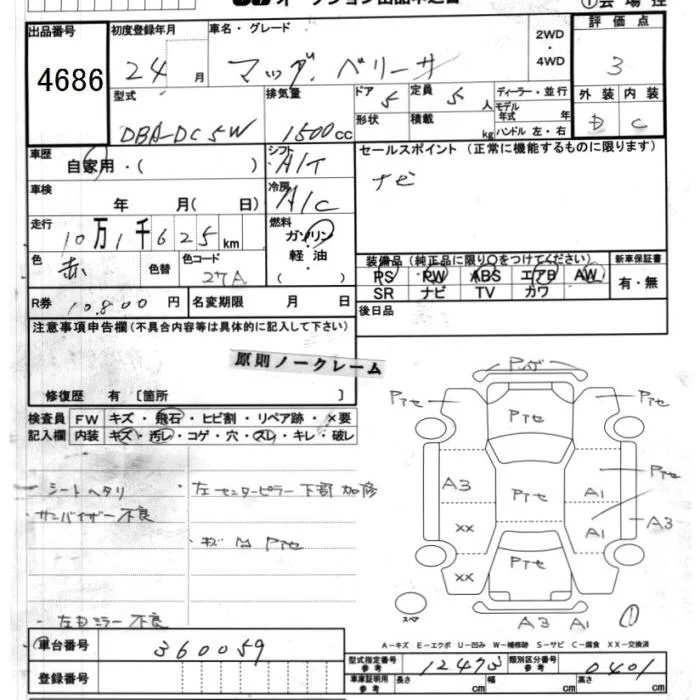 オークション出品申込書
①会場控
出品番号
4686
初度登録年月
24 月
車名・グレード
マツダ・ベリーサ
2WD
・
4WD
評価点
3
外装 内装
D C
型式
DBA-DC5W
排気量
1500cc
ドア
5
形状
定員
5 人
積載
kg
ディーラー・並行
モデル
年式 年
ハンドル 左・右
車歴
自家用・( )
シフト
A/T
セールスポイント (正常に機能するものに限ります)
ナビ
車検
年 月( 日)
冷房
A/C
走行
10万1千625km
燃料
ガソリン
軽油
( )
色
赤
色替
色コード
27A
装備品(純正品に限り○をつけてください)
PS PW ABS エアB AW
SR ナビ TV カワ
新車保証書
有・無
R券 10.800 円
名変期限 月 日
後日品
注意事項申告欄(不具合内容等は具体的に記入して下さい)
原則ノークレーム
修復歴 有 〔箇所 〕
検査員
記入欄
FW キズ・飛石・ヒビ割・リペア跡・×要
内装 キズ・汚レ・コゲ・穴・スレ・キレ・破レ
・シートヘタリ
・サンバイザー不良
・左センターピラー下部加修
・左ミラー不良
Pアセ
Pアセ
Pアセ
Pアセ
Pアセ
Pアセ
A3
A1
A3
XX
A1
XX
スペア
A3 A1
A-キズ E-エクボ U-凹み W-補修跡 S-サビ C-腐食 XX-交換済
車台番号
360059
登録番号
型式指定番号
参考
12473
類別区分番号
参考
0401
車庫証明用
参考
長さ cm
幅 cm
高さ cm